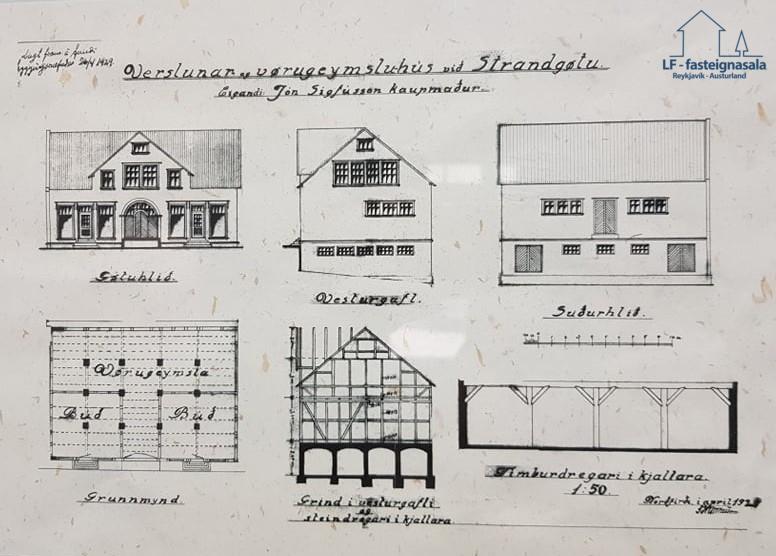 Lagt fram á fundi
byggingarnefndar 26/4 1929.
LF-fasteignasala
Reykjavík - Austurland
Verslunar og vørugeymsluhús við Strandgøtu.
Eigandi: Jón Sigfússon kaupmaður.
Gøtuhlið.
Vesturgafl.
Suðurhlið.
Vørugeymsla
Búð
Búð
Grunnmynd.
Grind í vesturgafli
og
steindregari í kjallara
Timburdregari í kjallara.
1:50
Norðfirði í apríl 1929